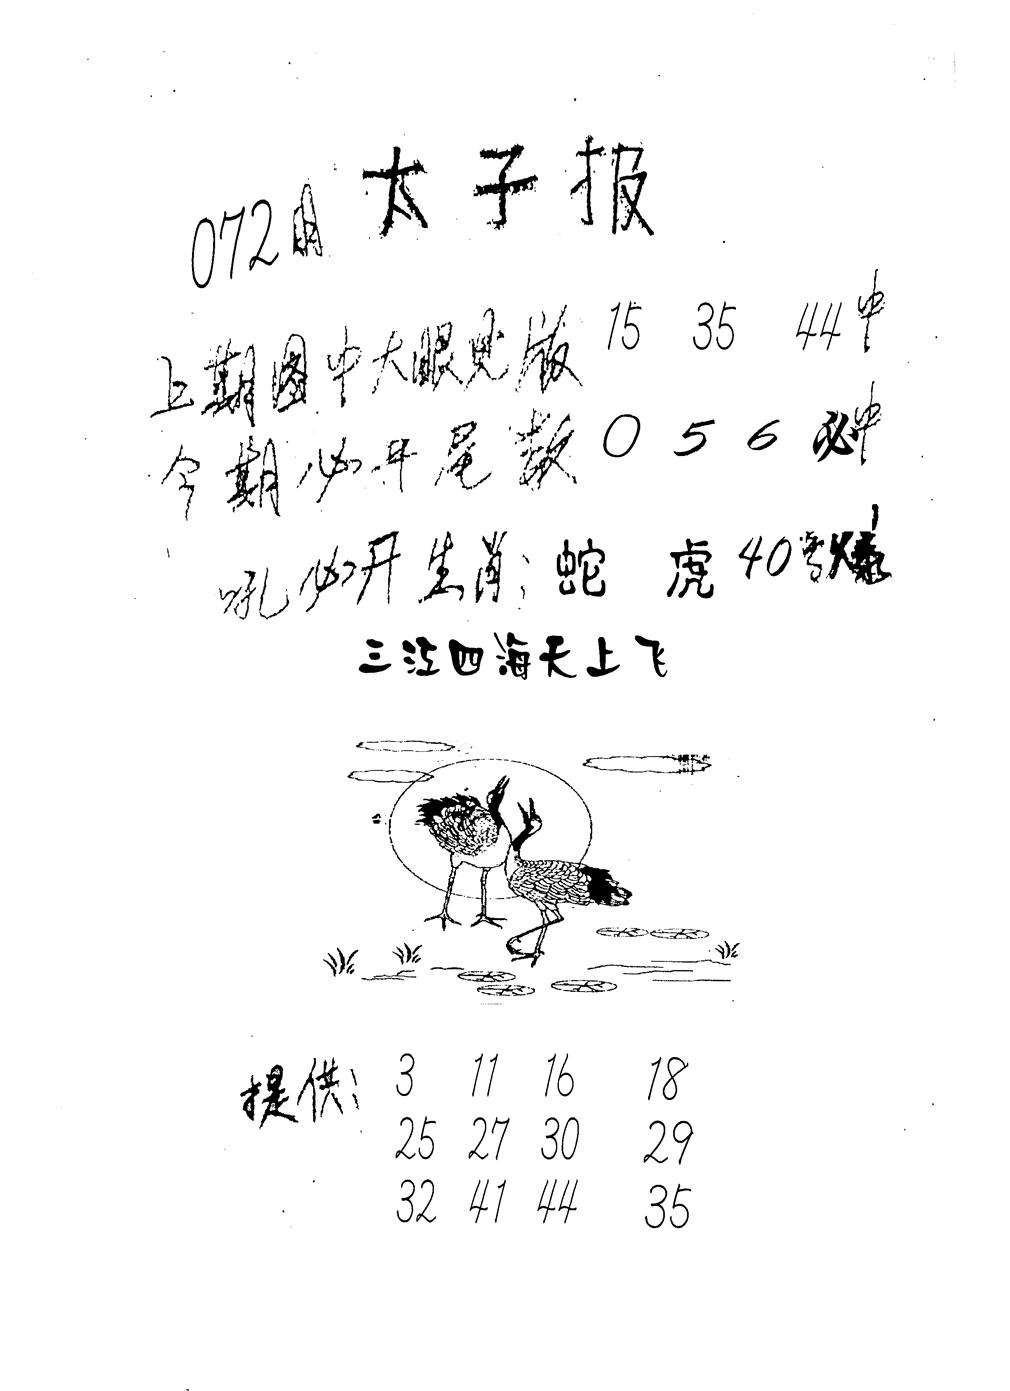 太子报
072期
上期图中大眼见版 15 35 44中
今期必开尾数 0 5 6 必中
吼必开生肖: 蛇 虎 40 爆
三江四海天上飞
提供: 3 11 16 18
25 27 30 29
32 41 44 35